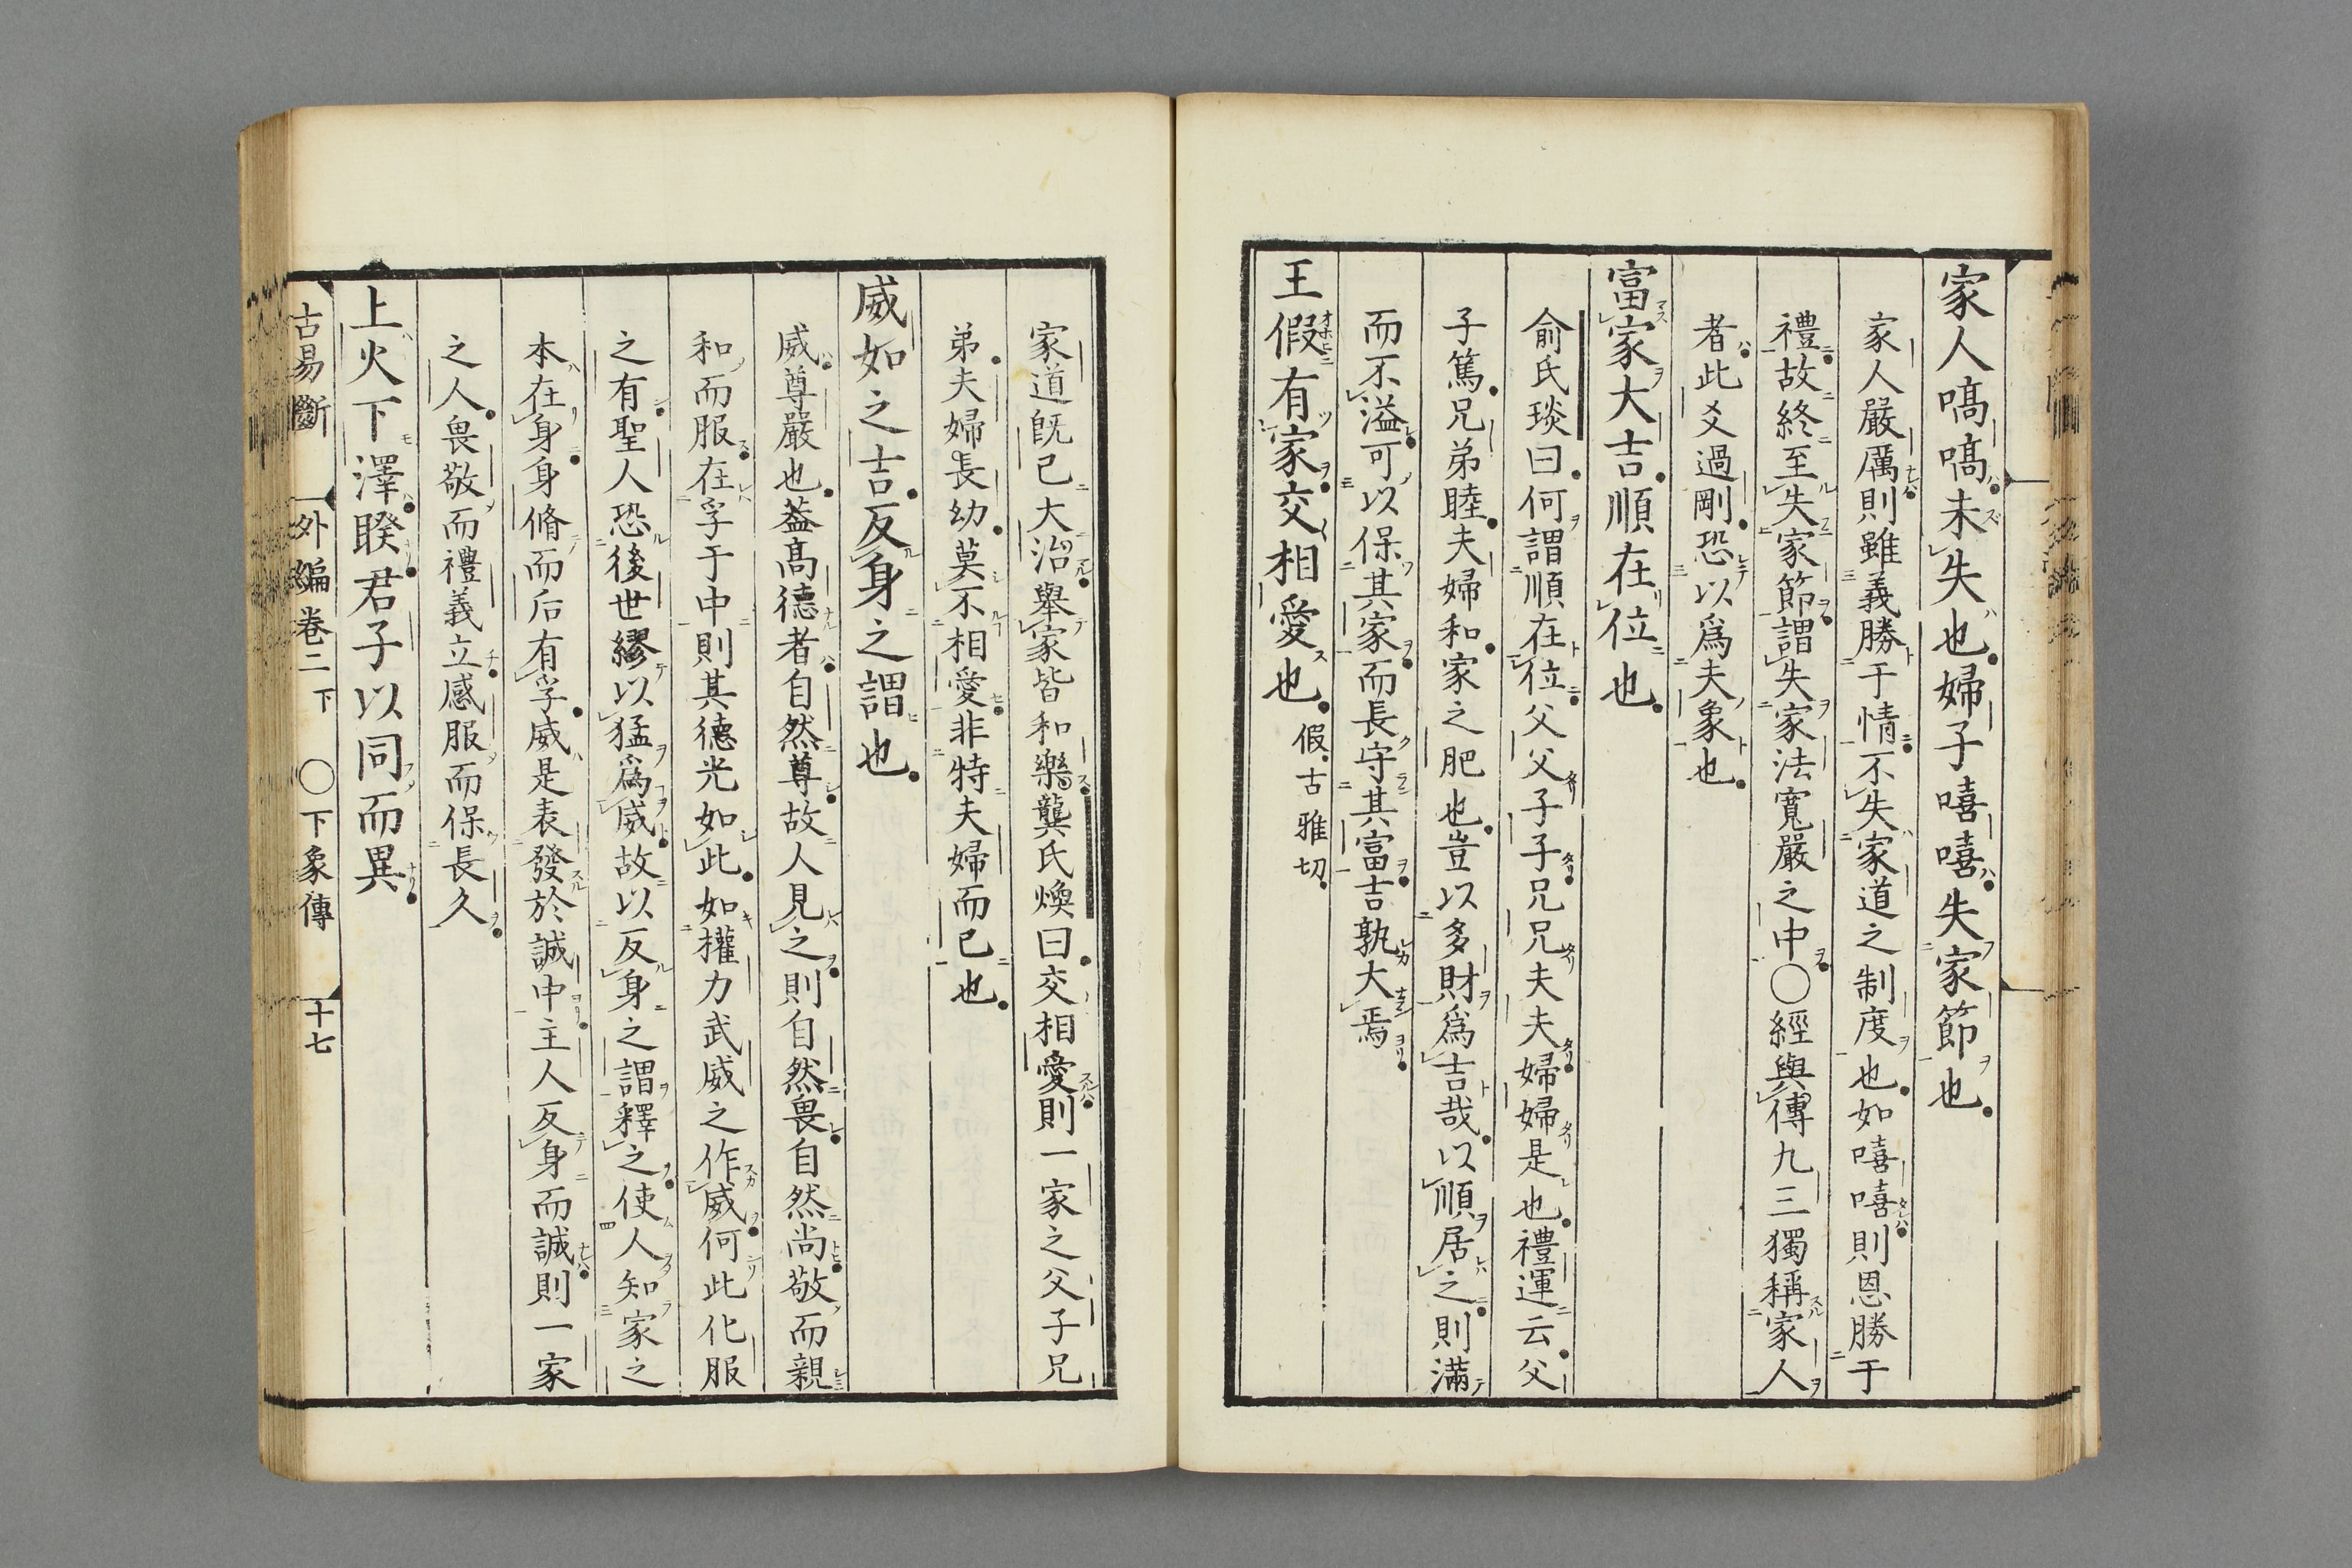 家人嗃嗃未失也婦子嘻嘻失家節也
家人嚴厲則雖義勝于情不失家道之制度也如嘻嘻則恩勝于
禮故終至失家節謂失家法寬嚴之中〇經與傳九三獨稱家人
者此爻過剛恐以爲夫象也
富家大吉順在位也
俞氏琰曰何謂順在位父父子子兄兄夫夫婦婦是也禮運云父
子篤兄弟睦夫婦和家之肥也豈以多財爲吉哉以順居之則滿
而不溢可以保其家而長守其富吉孰大焉
王假有家交相愛也假古雅切
家道既已大治舉家皆和樂龔氏煥曰交相愛則一家之父子兄
弟夫婦長幼莫不相愛非特夫婦而已也
威如之吉反身之謂也
威尊嚴也葢高德者自然尊故人見之則自然畏自然尚敬而親
和而服在孚于中則其德光如此如權力武威之作威何此化服
之有聖人恐後世繆以猛爲威故以反身之謂釋之使人知家之
本在身身脩而后有孚威是表發於誠中主人反身而誠則一家
之人畏敬而禮義立感服而保長久
上火下澤睽君子以同而異
古易斷 外編卷二下 〇下象傳 十七